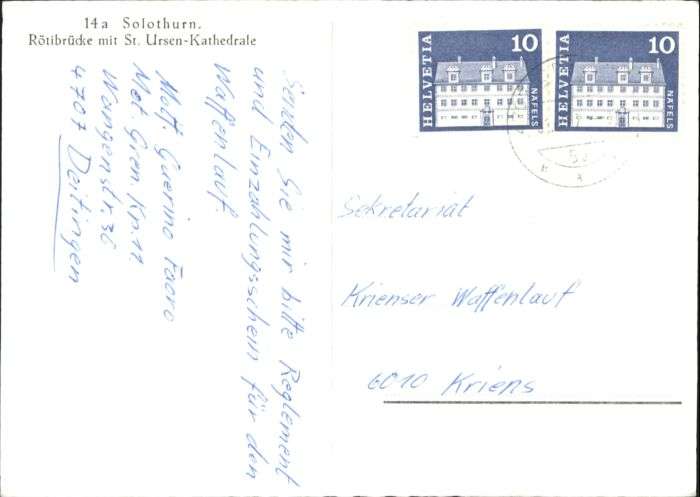 14a Solothurn.
Rötibrücke mit St. Ursen-Kathedrale
Senden Sie mir bitte Reglement
und Einzahlungsschein für den
Waffenlauf.
Motf. Guerino
Mot. Gren. Kp. 11
Wangenstr. 36
4707 Deitingen
HELVETIA 10 NÄFELS
HELVETIA 10 NÄFELS
Sekretariat
Krienser Waffenlauf
6010 Kriens